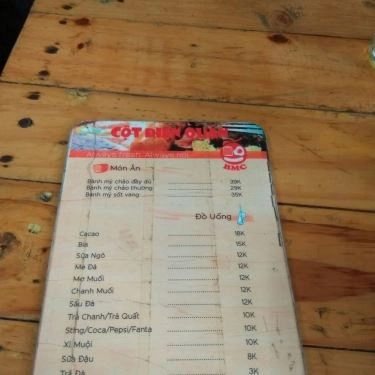 CỘT ĐIỆN QUÁN
Always fresh, Always hot
BMC
Món Ăn
Bánh mỳ chảo đầy đủ 39K
Bánh mỳ chảo thường 29K
Bánh mỳ sốt vang 35K
Đồ Uống
Cacao 18K
Bia 15K
Sữa Ngô 12K
Me Đá 12K
Mơ Muối 12K
Chanh Muối 12K
Sấu Đá 12K
Trà Chanh/Trà Quất 10K
Sting/Coca/Pepsi/Fanta 10K
Xí Muội 10K
Sữa Đậu 8K
Trà Đá 3K